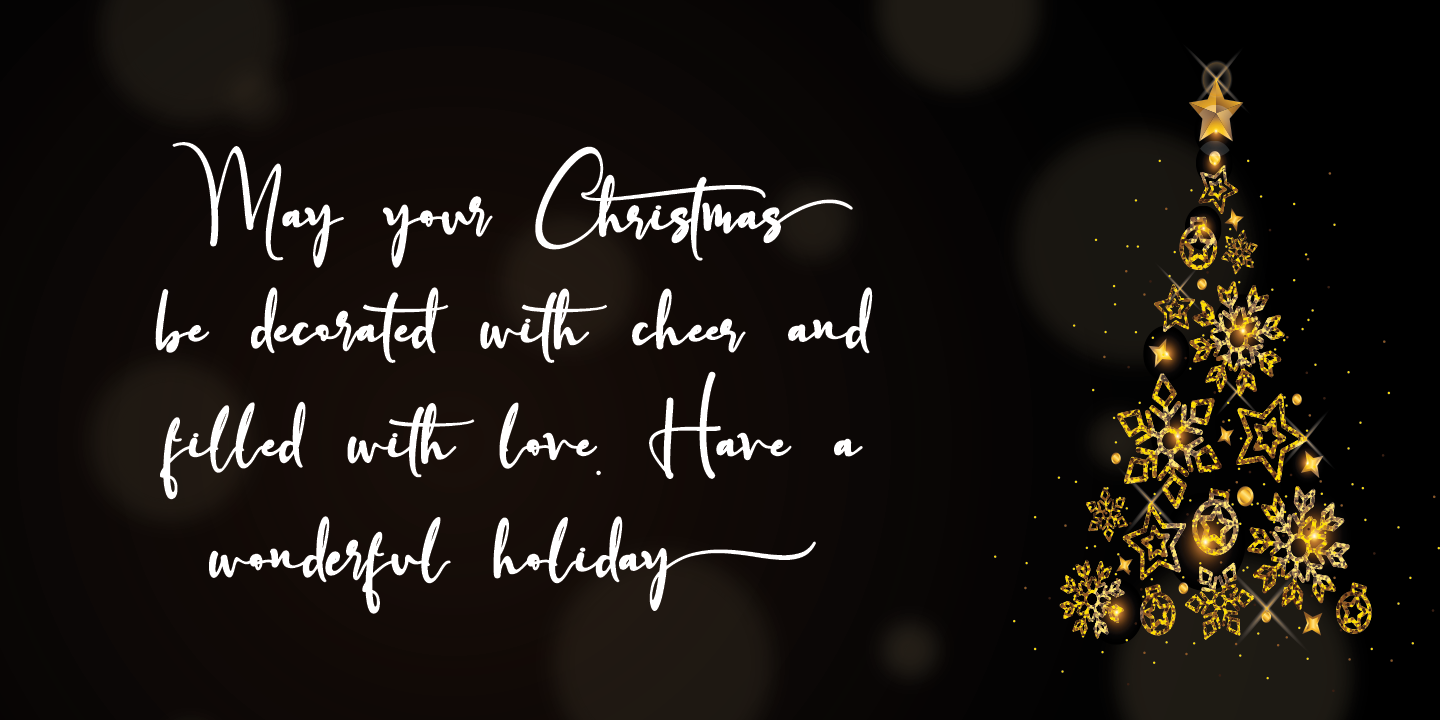 May your Christmas
be decorated with cheer and
filled with love. Have a
wonderful holiday